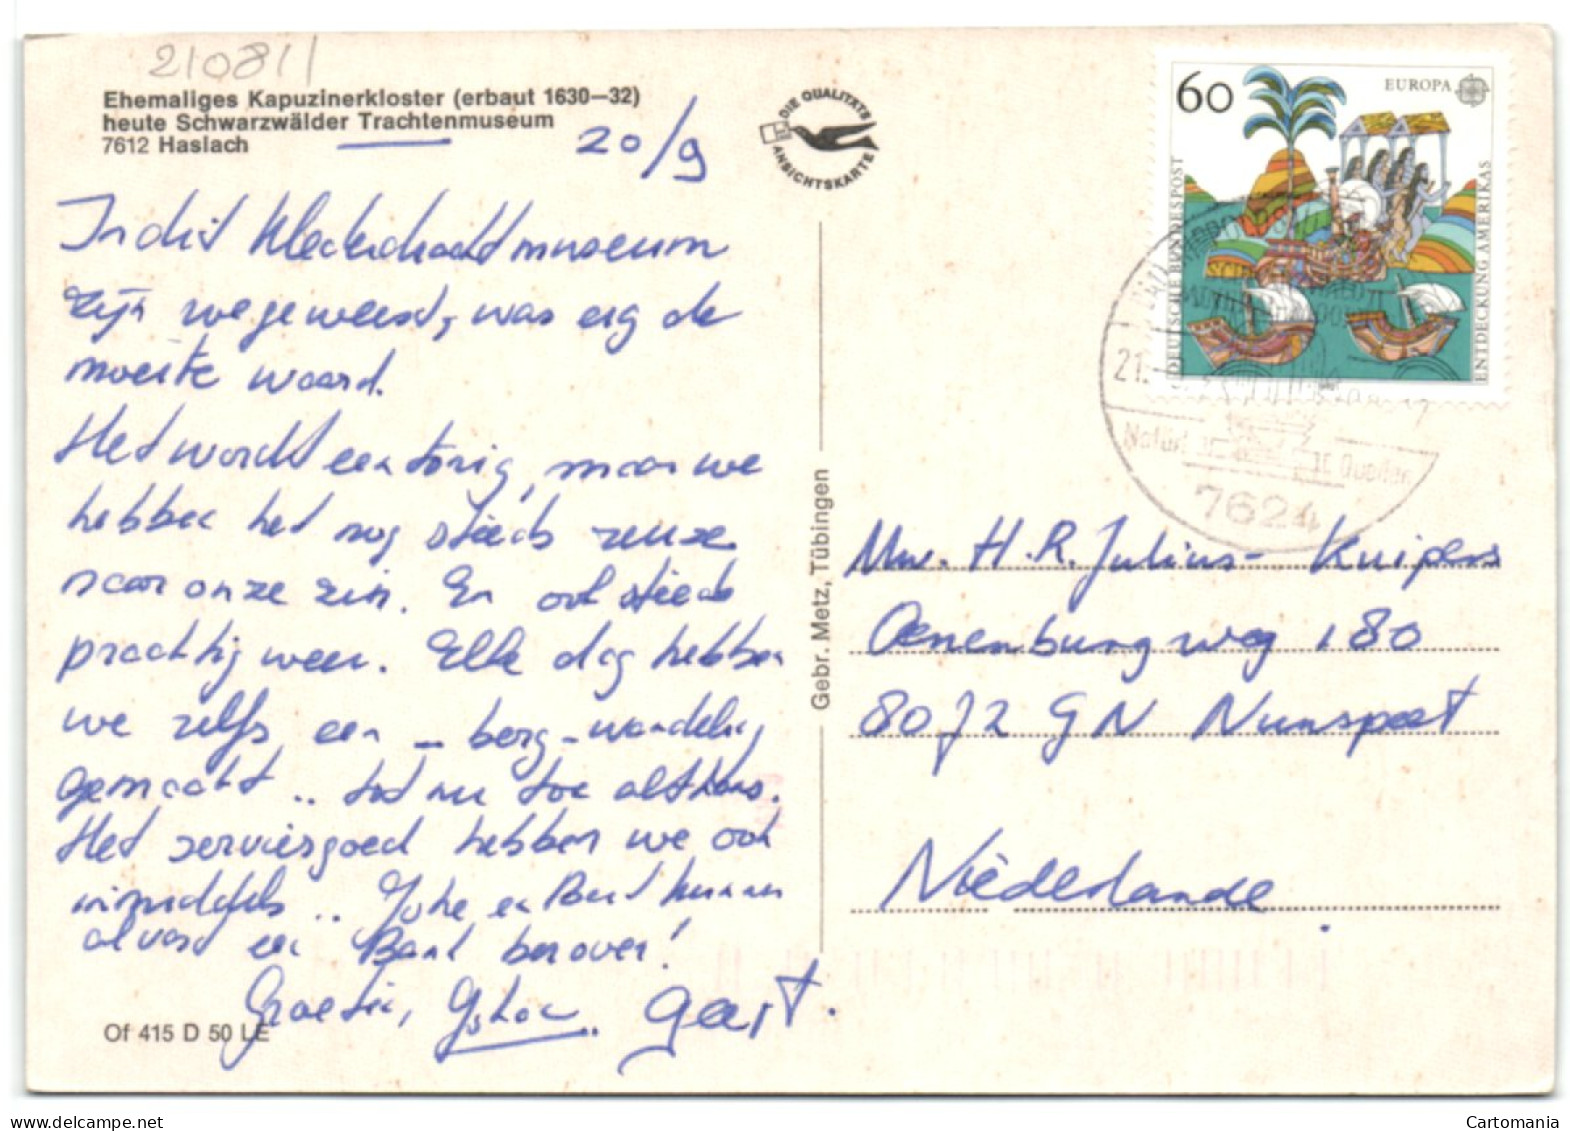 210811
Ehemaliges Kapuzinerkloster (erbaut 1630—32)
heute Schwarzwälder Trachtenmuseum
7612 Haslach
20/9
DIE QUALITÄTS
ANSICHTSKARTE
In dit klederdrachtmuseum
zijn we geweest, was erg de
moeite waard.
Het wordt eentonig, maar we
hebben het nog steeds reuze
naar onze zin. En ook steeds
prachtig weer. Elke dag hebben
we zelfs een - berg - wandeling
gemaakt .. tot nu toe althans.
Het serviesgoed hebben we ook
inmiddels .. en Bart kunnen
alvast een Bank beroven!
Groetjes, Geart.
Of 415 D 50 LE
Gebr. Metz, Tübingen
60
EUROPA
DEUTSCHE BUNDESPOST
ENTDECKUNG AMERIKAS
21.
7624
Mw. H.R. Julius-Kuipers
Oenenburgweg 180
8072 GN Nunspeet
Niederlande.
Cartomania